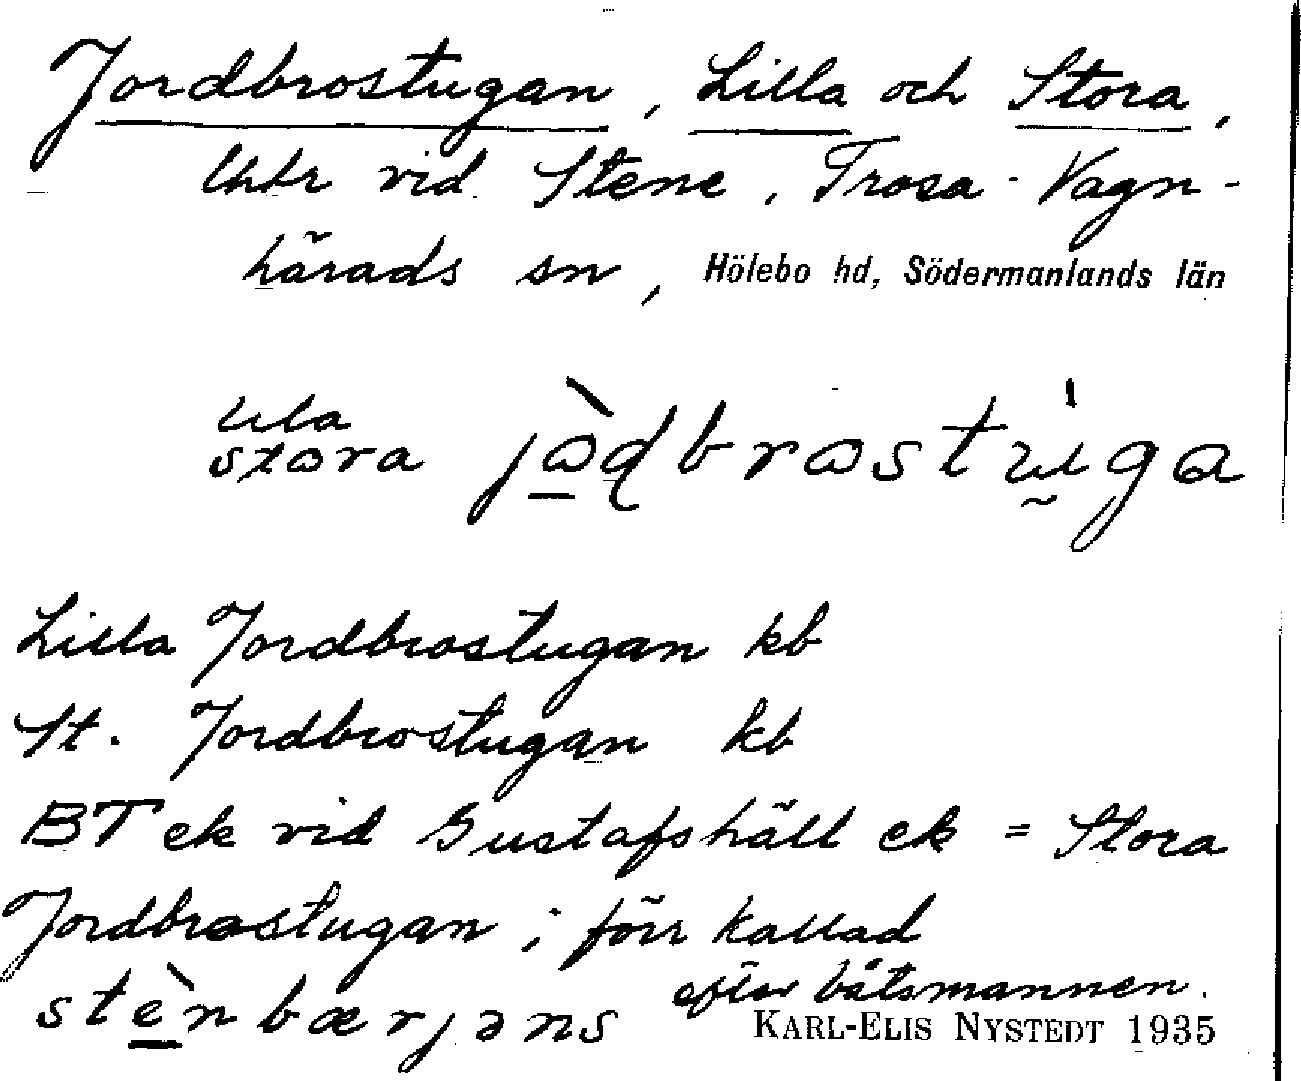 Jordbrostugan, Lilla och Stora,
lhtr vid Stene, Trosa-Vagn-
härads sn, Hölebo hd, Södermanlands län
lila
stora jòdbrostu̇ga
Lilla Jordbrostugan kb
St. Jordbrostugan kb
BT ek vid Gustafshäll ek = Stora
Jordbrostugan; förr kallad
stènbærjəns efter båtsmannen.
KARL-ELIS NYSTEDT 1935